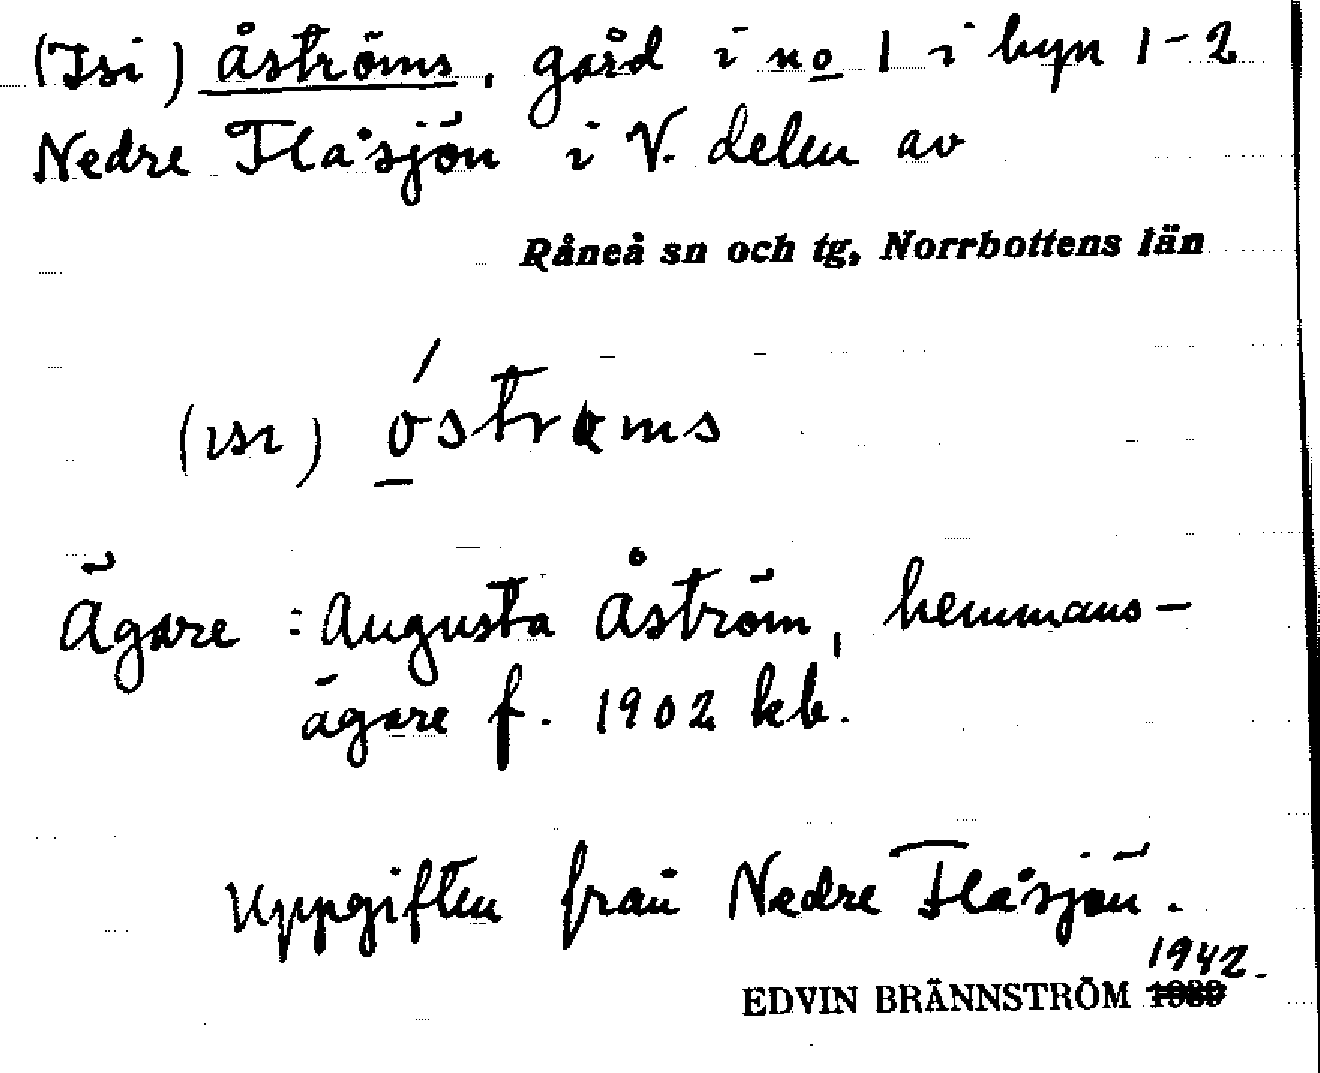 (Isi) Åströms, gård i no 1 i byn 1-2
Nedre Flåsjön i V. delen av
Råneå sn och tg, Norrbottens län
(ısı) óstrəms
Ägare : Augusta Åström, hemmans-
ägare f. 1902 kb.
Uppgiften från Nedre Flåsjön.
1942.
EDVIN BRÄNNSTRÖM